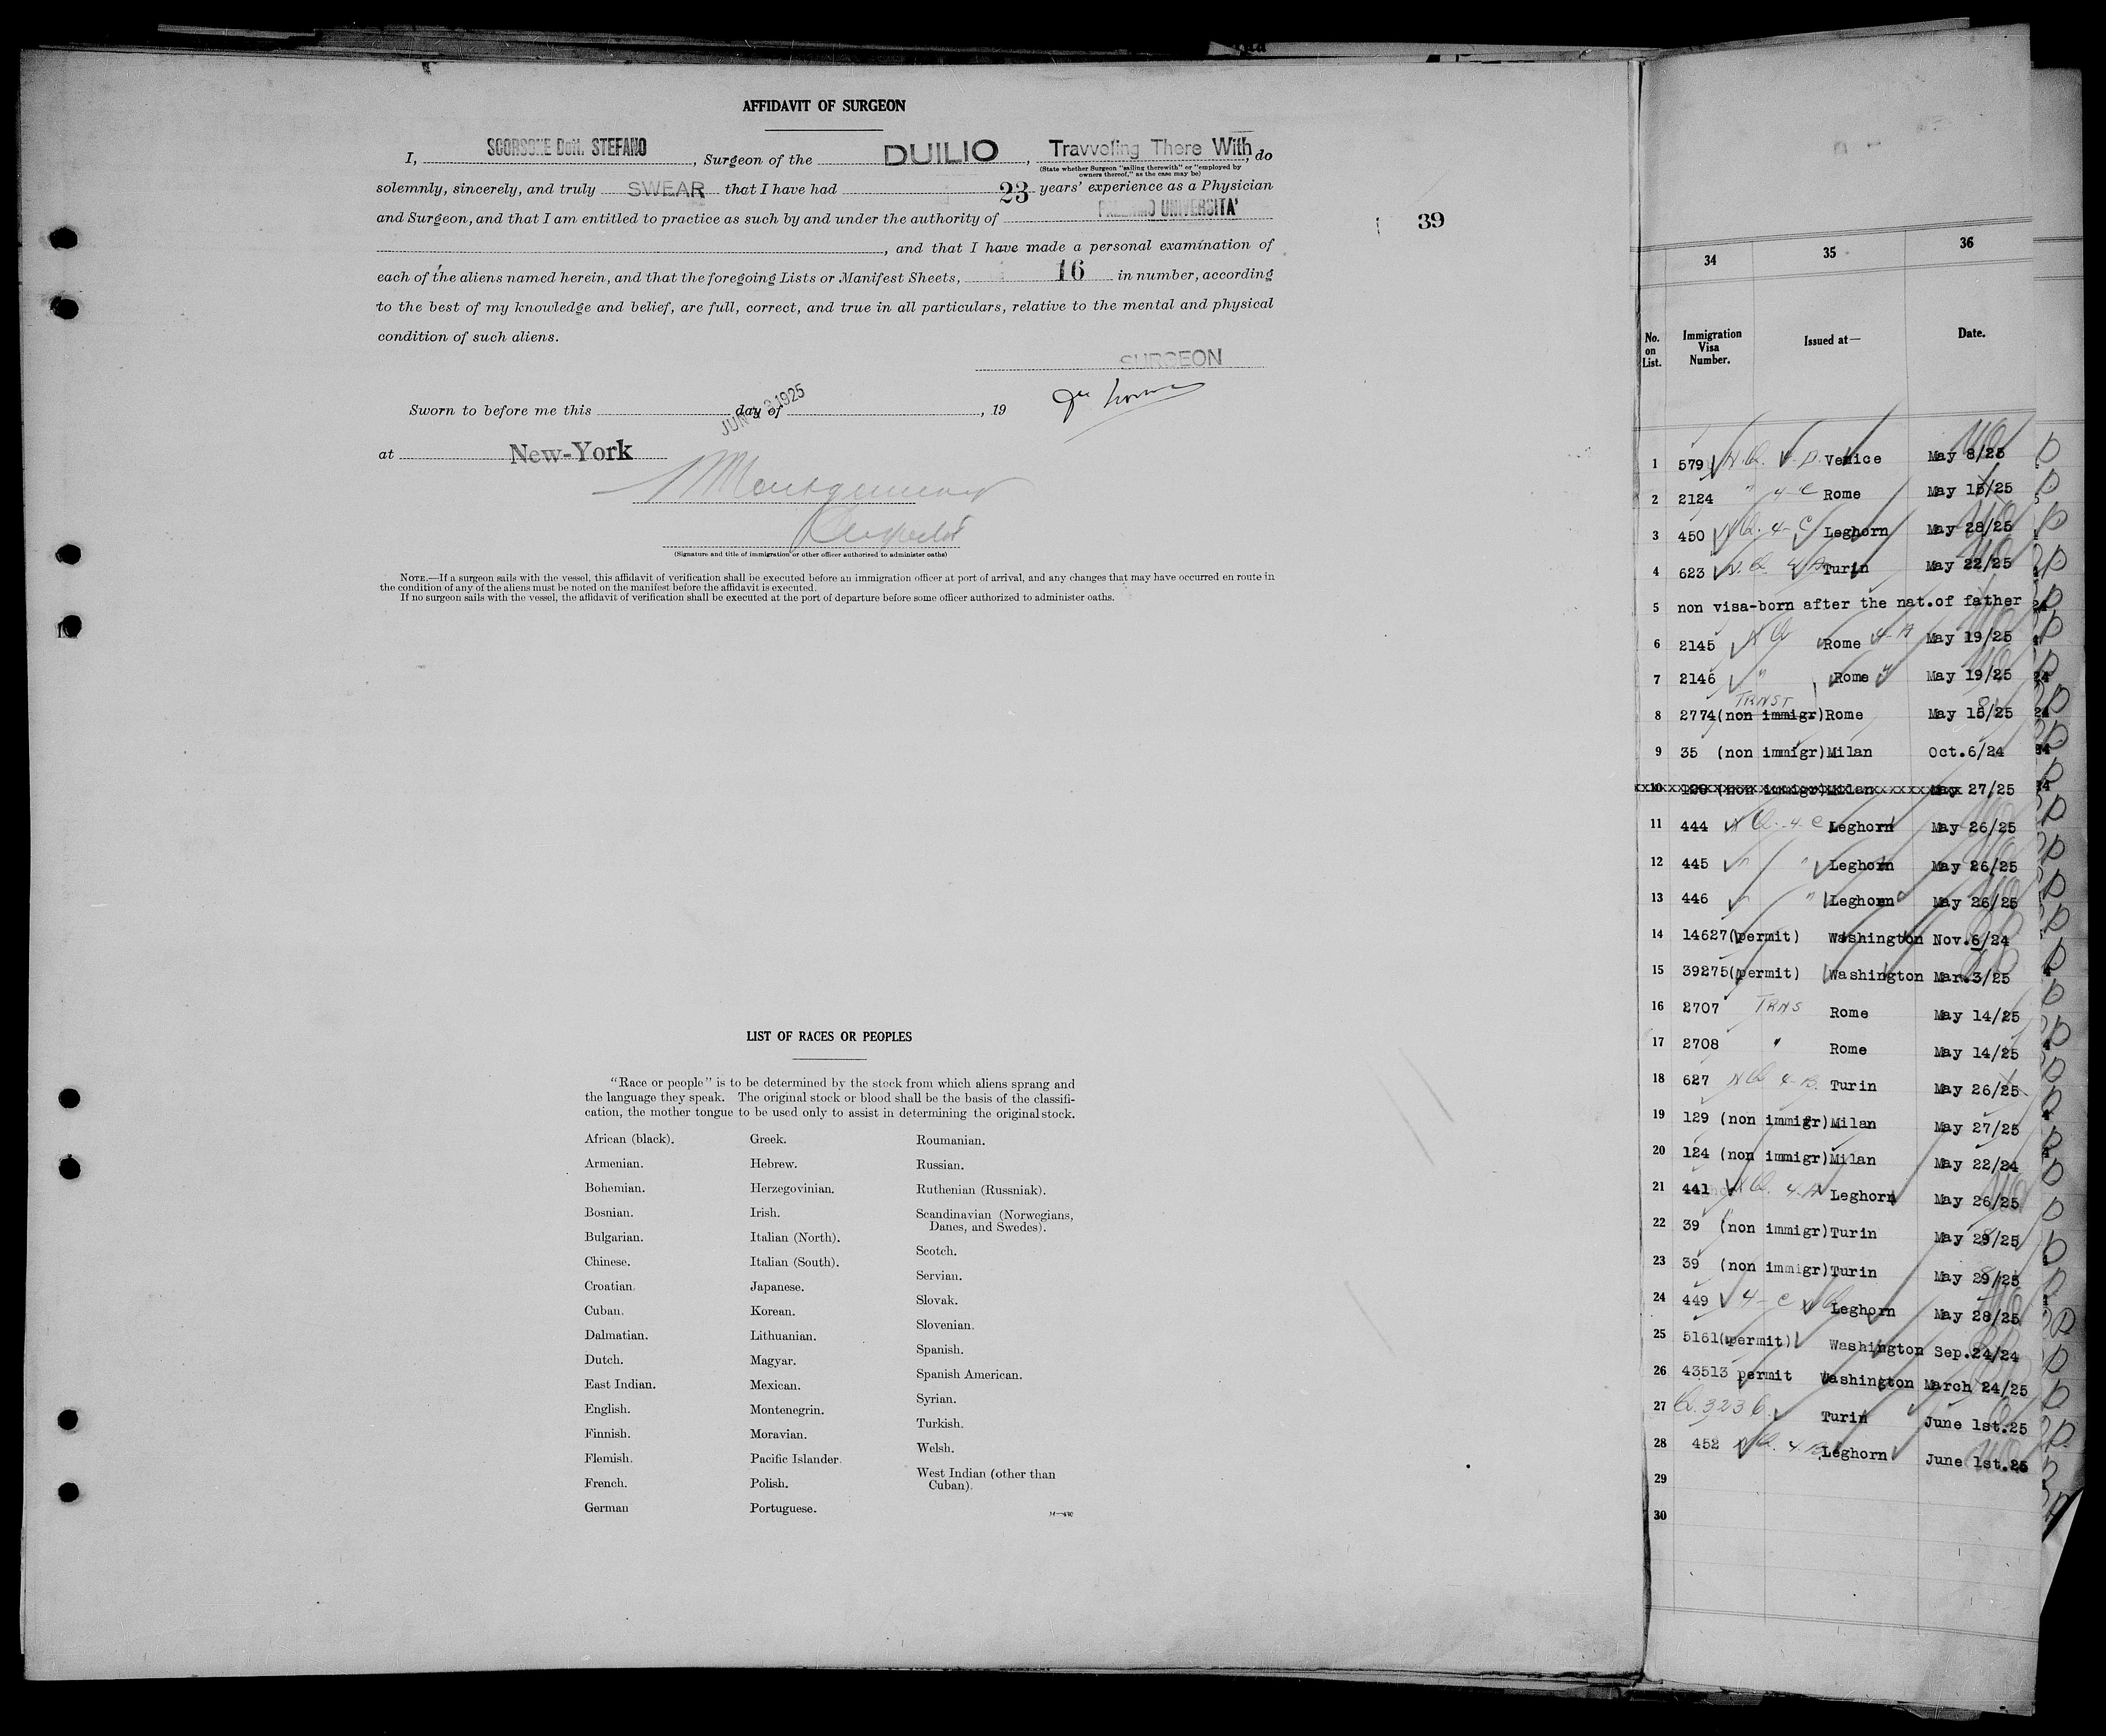 AFFIDAVIT OF SURGEON
I, SCORSONE Dott. STEFANO, Surgeon of the DUILIO, Travveling There With, do
(State whether Surgeon "sailing therewith" or "employed by
owners thereof," as the case may be)
solemnly, sincerely, and truly SWEAR that I have had 23 years' experience as a Physician
and Surgeon, and that I am entitled to practice as such by and under the authority of PALERMO UNIVERSITA'
, and that I have made a personal examination of
each of the aliens named herein, and that the foregoing Lists or Manifest Sheets, 16 in number, according
to the best of my knowledge and belief, are full, correct, and true in all particulars, relative to the mental and physical
condition of such aliens.
SURGEON
Sworn to before me this day of , 19
JUN 1925
at New-York
Montgomery
(Signature and title of immigration or other officer authorized to administer oaths)
NOTE.—If a surgeon sails with the vessel, this affidavit of verification shall be executed before an immigration officer at port of arrival, and any changes that may have occurred en route in
the condition of any of the aliens must be noted on the manifest before the affidavit is executed.
If no surgeon sails with the vessel, the affidavit of verification shall be executed at the port of departure before some officer authorized to administer oaths.
39
LIST OF RACES OR PEOPLES
"Race or people" is to be determined by the stock from which aliens sprang and
the language they speak. The original stock or blood shall be the basis of the classifi-
cation, the mother tongue to be used only to assist in determining the original stock.
African (black).
Armenian.
Bohemian.
Bosnian.
Bulgarian.
Chinese.
Croatian.
Cuban.
Dalmatian.
Dutch.
East Indian.
English.
Finnish.
Flemish.
French.
German
Greek.
Hebrew.
Herzegovinian.
Irish.
Italian (North).
Italian (South).
Japanese.
Korean.
Lithuanian.
Magyar.
Mexican.
Montenegrin.
Moravian.
Pacific Islander.
Polish.
Portuguese.
Roumanian.
Russian.
Ruthenian (Russniak).
Scandinavian (Norwegians,
Danes, and Swedes).
Scotch.
Servian.
Slovak.
Slovenian.
Spanish.
Spanish American.
Syrian.
Turkish.
Welsh.
West Indian (other than
Cuban).
34 35 36
No. on List. Immigration Visa Number. Issued at— Date.
1 579 N.Q. 4-D. Venice May 8/25
2 2124 " 4-C Rome May 15/25
3 450 N Q. 4-C Leghorn May 28/25
4 623 N.Q. 4-A Turin May 22/25
5 non visa-born after the nat.of father
6 2145 N Q Rome 4-A May 19/25
7 2146 " Rome " May 19/25
TRNST
8 2774(non immigr)Rome May 15/25
9 35 (non immigr)Milan Oct.6/24
10 129 (non immigr)Milan May 27/25
11 444 N Q. 4-C Leghorn May 26/25
12 445 " " Leghorn May 26/25
13 446 " " Leghorn May 26/25
14 14627(permit) Washington Nov.6/24
15 39275(permit) Washington Mar.3/25
16 2707 TRNS Rome May 14/25
17 2708 " Rome May 14/25
18 627 NQ 4-B. Turin May 26/25
19 129 (non immigr)Milan May 27/25
20 124 (non immigr)Milan May 22/24
21 441 N Q. 4-A Leghorn May 26/25
22 39 (non immigr)Turin May 29/25
23 39 (non immigr)Turin May 29/25
24 449 4-C N Q Leghorn May 28/25
25 5161(permit) Washington Sep.24/24
26 43513 permit Washington March 24/25
27 Q. 3236. Turin June 1st.25
28 452 N Q. 4-B Leghorn June 1st.25
29
30